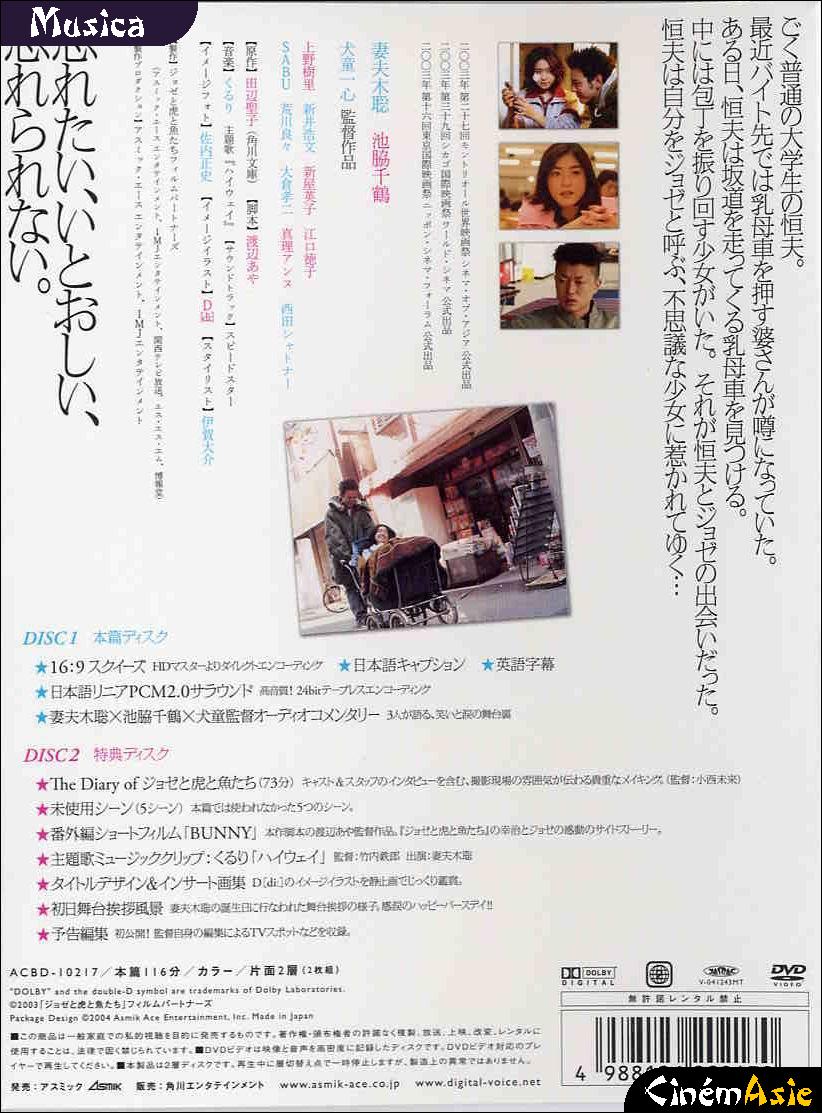 Musica
ごく普通の大学生の恒夫。
最近バイト先では乳母車を押す婆さんが噂になっていた。
ある日、恒夫は坂道を走ってくる乳母車を見つける。
中には包丁を振り回す少女がいた。それが恒夫とジョゼの出会いだった。
恒夫は自分をジョゼと呼ぶ、不思議な少女に惹かれてゆく…
二〇〇三年 第二十七回モントリオール世界映画祭 シネマ・オブ・アジア 公式出品
二〇〇三年 第三十九回シカゴ国際映画祭 ワールド・シネマ 公式出品
二〇〇三年 第十六回東京国際映画祭 ニッポン・シネマ・フォーラム 公式出品
妻夫木聡 池脇千鶴
犬童一心 監督作品
上野樹里 新井浩文 新屋英子 江口徳子
SABU 荒川良々 大倉孝二 真理アンヌ 西田シャトナー
【原作】田辺聖子(角川文庫)【脚本】渡辺あや
【音楽】くるり 主題歌『ハイウェイ』【サウンドトラック】スピードスター
【イメージフォト】佐内正史 【イメージイラスト】D[di:] 【スタイリスト】伊賀大介
製作】ジョゼと虎と魚たちフィルムパートナーズ
(アスミック・エース エンタテインメント、IMJエンタテインメント、関西テレビ放送、エス・エス・エム、博報堂)
製作プロダクション】アスミック・エース エンタテインメント、IMJエンタテインメント
忘れたい、いとおしい、
忘れられない。
DISC1 本篇ディスク
★16:9スクイーズ HDマスターよりダイレクトエンコーディング ★日本語キャプション ★英語字幕
★日本語リニアPCM2.0サラウンド 高音質!24bitテープレスエンコーディング
★妻夫木聡×池脇千鶴×犬童監督オーディオコメンタリー 3人が語る、笑いと涙の舞台裏
DISC2 特典ディスク
★The Diary of ジョゼと虎と魚たち(73分) キャスト&スタッフのインタビューを含む、撮影現場の雰囲気が伝わる貴重なメイキング。(監督:小西未来)
★未使用シーン(5シーン) 本篇では使われなかった5つのシーン。
★番外編ショートフィルム「BUNNY」 本作脚本の渡辺あや監督作品。『ジョゼと虎と魚たち』の幸治とジョゼの感動のサイドストーリー。
★主題歌ミュージッククリップ:くるり「ハイウェイ」 監督:竹内鉄郎 出演:妻夫木聡
★タイトルデザイン&インサート画集 D[di:]のイメージイラストを静止画でじっくり鑑賞。
★初日舞台挨拶風景 妻夫木聡の誕生日に行なわれた舞台挨拶の様子。感涙のハッピーバースデイ!!
★予告編集 初公開!監督自身の編集によるTVスポットなどを収録。
ACBD-10217/本篇116分/カラー/片面2層(2枚組)
"DOLBY" and the double-D symbol are trademarks of Dolby Laboratories.
©2003「ジョゼと虎と魚たち」フィルムパートナーズ
Package Design ©2004 Asmik Ace Entertainment, Inc. Made in Japan
■この商品は一般家庭での私的視聴を目的に発売するものです。著作権・頒布権者の許諾なく複製、放送、上映、改変、レンタルに
使用することは、法律で固く禁じられています。■DVDビデオは映像と音声を高密度に記録したディスクです。DVDビデオ対応のプレイ
ヤーで再生してください。■本製品は2層ディスクです。再生中に層切替え点で一時停止しますが、製造上の異常ではありません。
発売:アスミック ASMIK 販売:角川エンタテインメント www.asmik-ace.co.jp www.digital-voice.net
DOLBY
DIGITAL
2
V-041243MT
DVD
VIDEO
無許諾レンタル禁止
4 988
CinémAsie